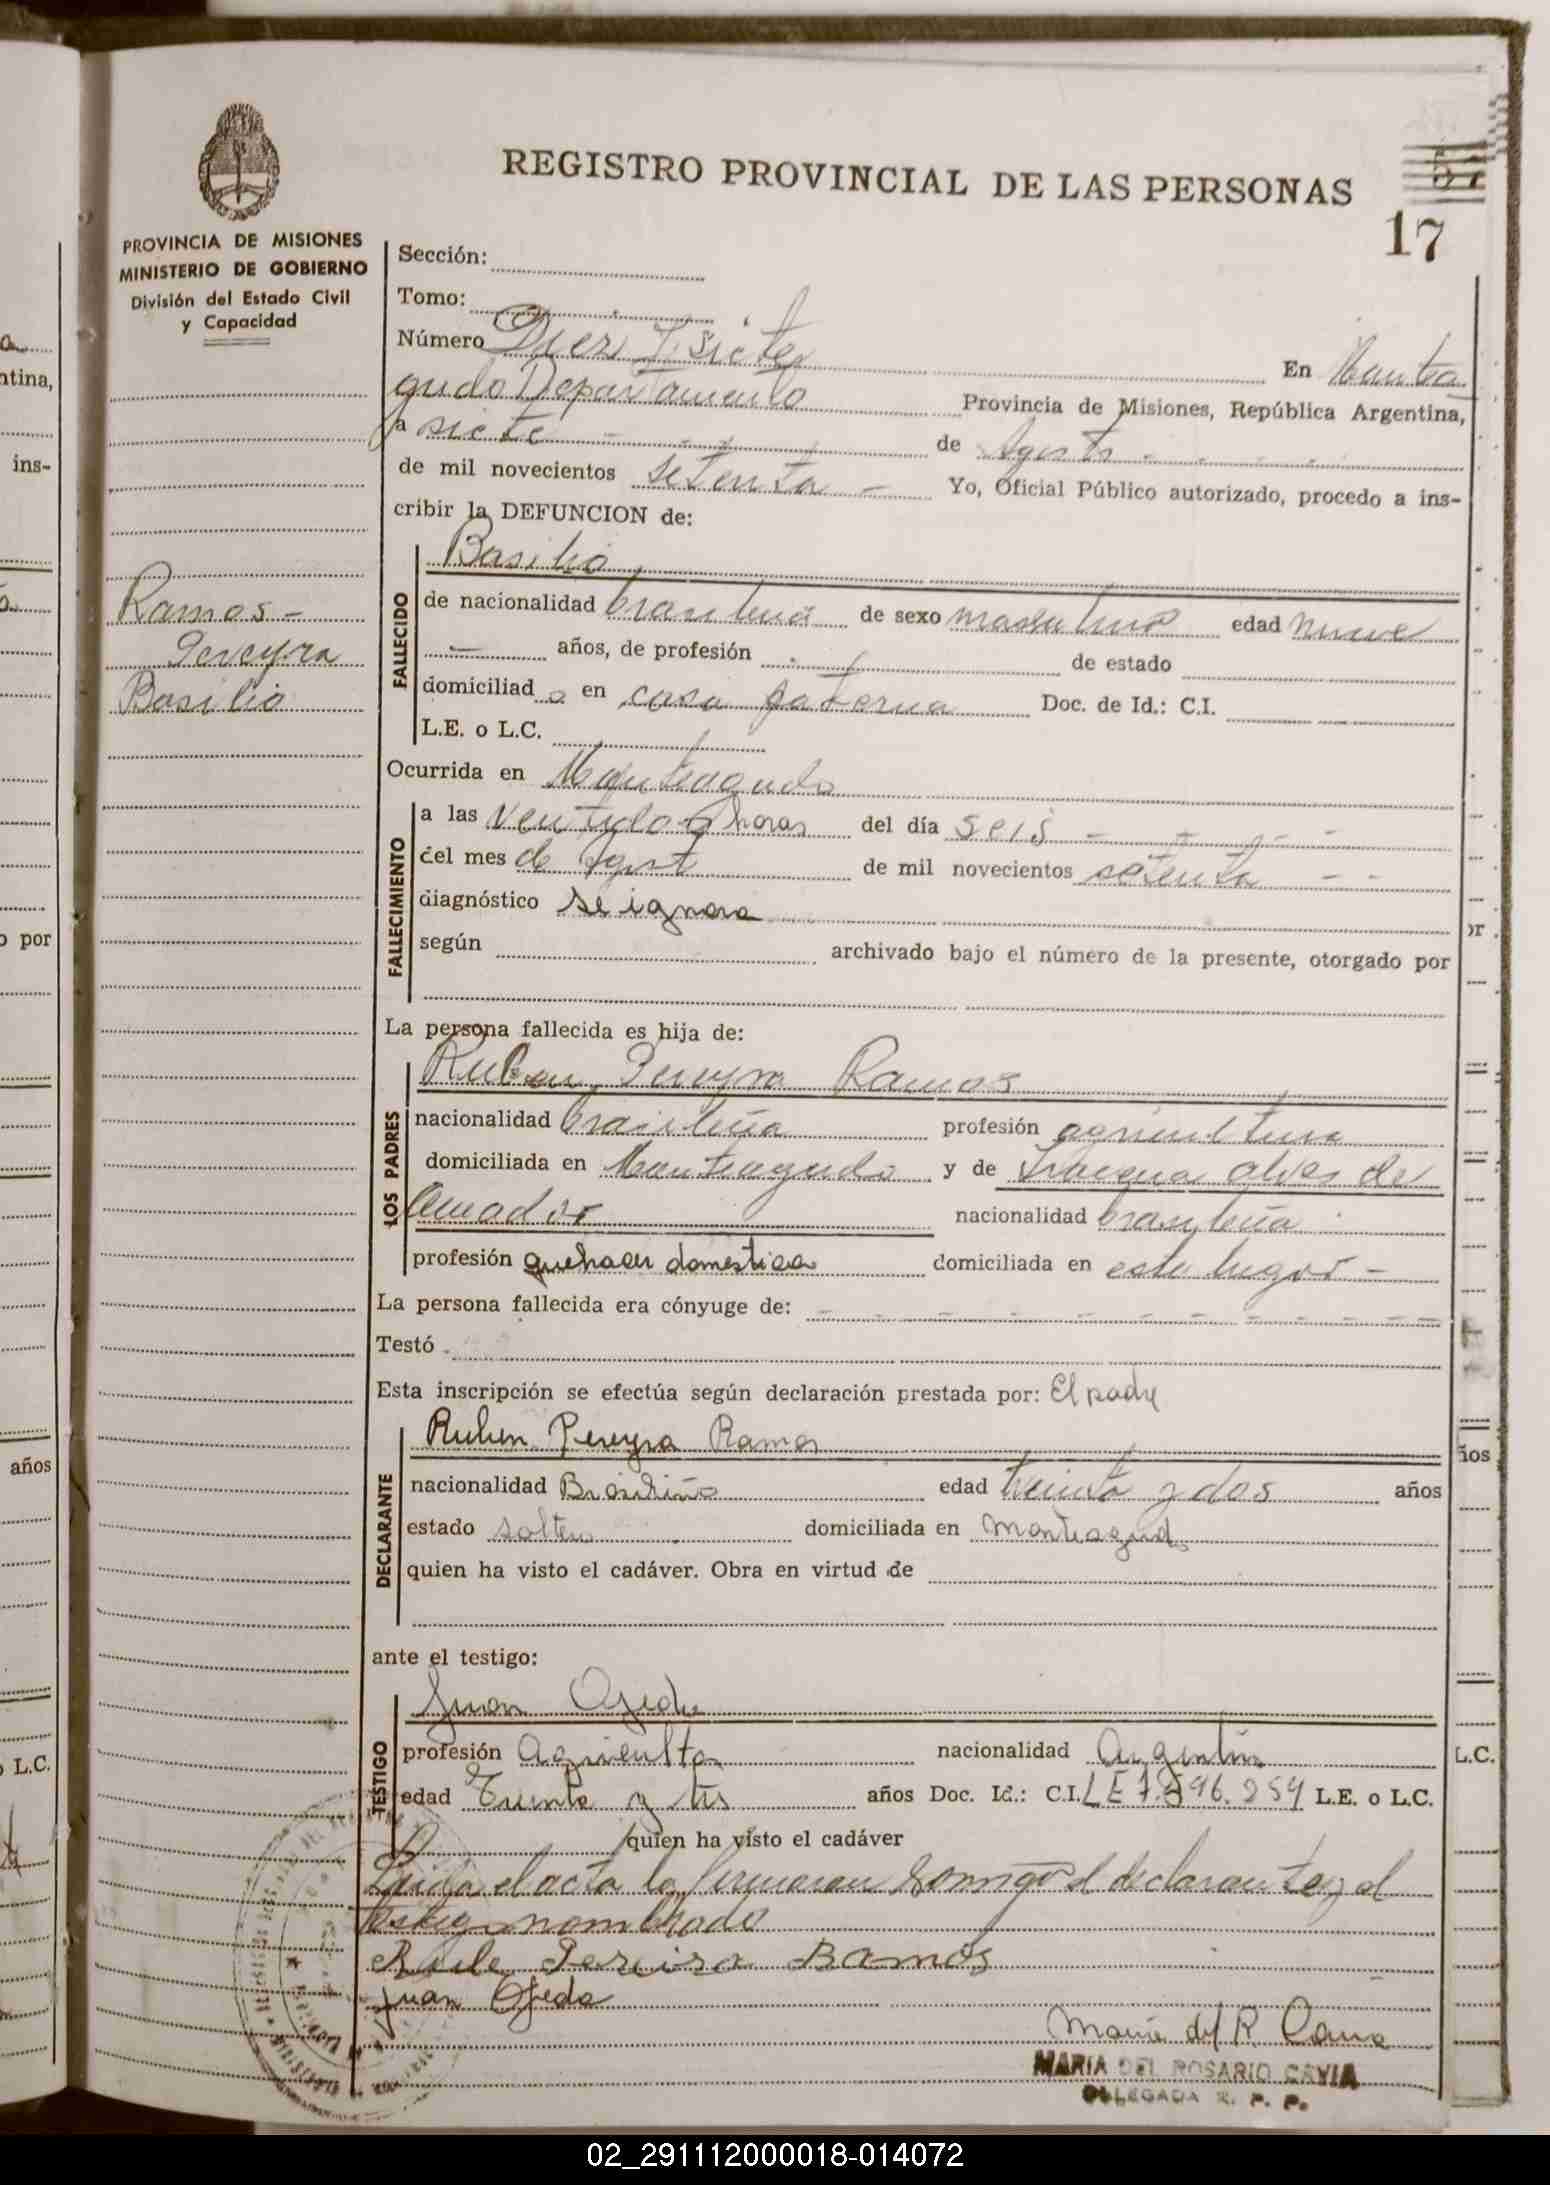 REGISTRO PROVINCIAL DE LAS PERSONAS
17
PROVINCIA DE MISIONES
MINISTERIO DE GOBIERNO
División del Estado Civil
y Capacidad
Ramos -
Pereyra
Basilio
Sección:
Tomo:
Número Diez y siete En Montea
gudo Departamento Provincia de Misiones, República Argentina,
a siete de Agosto
de mil novecientos setenta - Yo, Oficial Público autorizado, procedo a ins-
cribir la DEFUNCION de:
Basilio
FALLECIDO
de nacionalidad brasileña de sexo masculino edad nueve
- años, de profesión de estado
domiciliado en casa paterna Doc. de Id.: C.I.
L.E. o L.C.
Ocurrida en Monteagudo
FALLECIMIENTO
a las horas del día seis
del mes de mil novecientos setenta - -
diagnóstico se ignora
según archivado bajo el número de la presente, otorgado por
La persona fallecida es hija de:
LOS PADRES
Ruben Pereyra Ramos
nacionalidad brasileña profesión
domiciliada en Monteagudo y de alves de
Amador nacionalidad brasileña
profesión quehacer domestica domiciliada en este lugar -
La persona fallecida era cónyuge de:
Testó
Esta inscripción se efectúa según declaración prestada por: El padre
DECLARANTE
Ruben Pereyra Ramos
nacionalidad Brasileño edad y dos años
estado soltero domiciliada en Monteagudo
quien ha visto el cadáver. Obra en virtud de
ante el testigo:
TESTIGO
Juan Ojeda
profesión Agricultor nacionalidad Argentino
edad Treinta y tres años Doc. Id.: C.I. LE 7.596.259 L.E. o L.C.
quien ha visto el cadáver
Leida el acta la firmaran conmigo el declarante y el
testigo nombrado
Pereira Ramos
Juan Ojeda
Maria del R Cavia
MARIA DEL ROSARIO CAVIA
DELEGADA R. P. P.
ntina,
ins-
o por
años
o L.C.
or
ños
L.C.
02_291112000018-014072